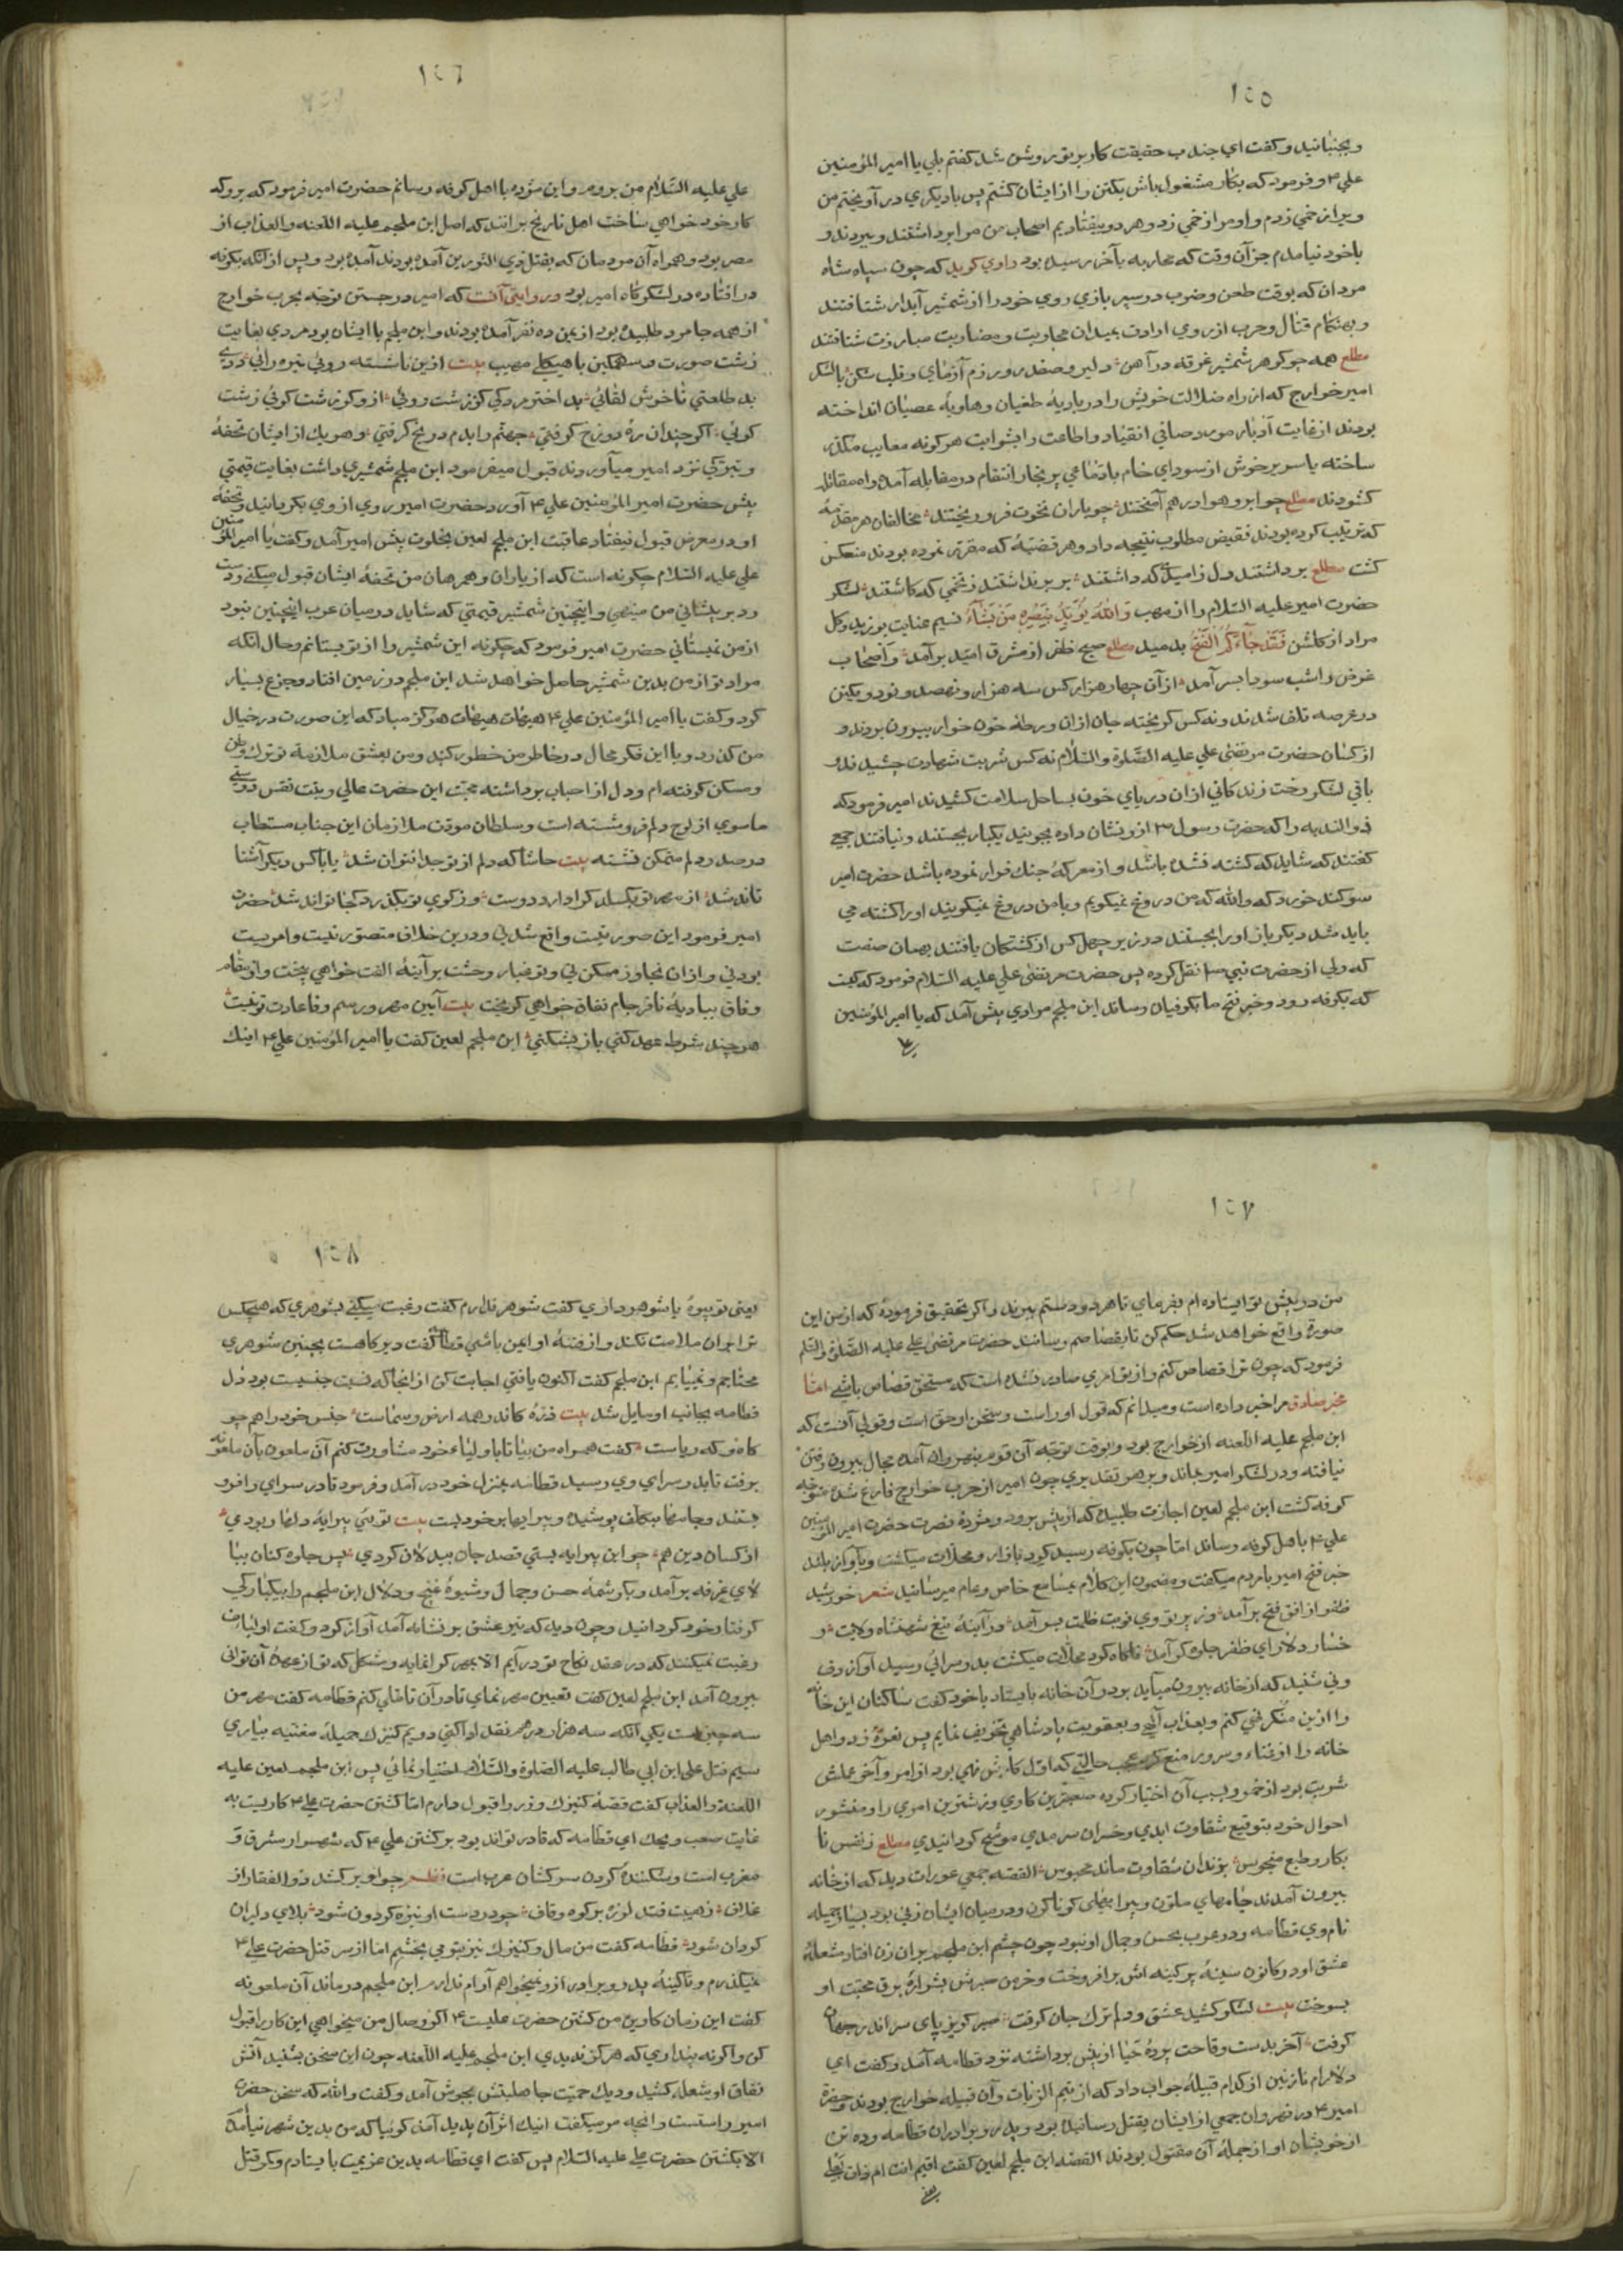 ١٥٥
وبجنبانید وکفت ای جندب حقیقت کار بر تو روشن شد کفتم بلی یا امیر المؤمنین
علی ٤م وفرمود که بکار مشغول باش یکتن را از ایشان کشتم پس با دیکری در آویختم من
ویرا زخمی زدم واو مرا زخمی زد وهر دو بیفتادیم اصحاب من مرا برداشتند وببردند و
باخود نیامدم جز آن وقت که محاربه بآخر رسیده بود راوی کوید که چون سپاه شاه
مردان که بوقت طعن وضرب در سپر بازی روی خود را از شمشیر آبدار شتافتند
وبهنکام قتال وحرب از روی ارادت بمیدان محاربت ومضاربت مبارزت شتافتند
مطلع همه چو کوهر شمشیر غرقه در آهن دلیر وصفدر ورزم آزمای وقلب شکن بالشکر
امیر خوارج که از راه ضلالت خویش را در بادیهٔ طغیان وهاویهٔ عصیان انداخته
بودند از غایت ادبار مورد صافی انقیاد واطاعت را بشوایب هر کونه معایب مکدر
ساخته یاسر پر خوش از سودای خام با دماغی پر بخار انتقام در مقابله آمده راه مقاتله
کشودند مطلع چو ابر وهوا در هم آمیختند چو باران نخوت فرو ریختند مخالفان هر مقدمهٔ
که ترتیب کرده بودند نقیض مطلوب نتیجه داد وهر قضیهٔ که مقرر نموده بودند منعکس
کشت مطلع برداشتند دل ز امیدی که داشتند بر برنداشتند ز تخمی که کاشتند لشکر
حضرت امیر علیه السلام را از مهب وَاللَّهُ يُؤَيِّدُ بِنَصْرِهِ مَنْ يَشَاءُ نسیم عنایت بوزید وکل
مراد از کلشن فَقَدْ جَاءَكُمُ الْفَتْحُ بدمید مطلع صبح ظفر از مشرق امید برآمد واصحاب
غرض را شب سودا بسر آمد از آن چهار هزار کس سه هزار ونهصد ونود ویکتن
در عرصه تلف شدند ونه کس کریخته جان از ان ورطهٔ خون خوار بیرون بردند و
از کسان حضرت مرتضی علی علیه الصلوة والسلام نه کس شربت شهادت چشیدند و
باقی لشکر رخت زندکانی از ان دریای خون بساحل سلامت کشیدند امیر فرمود که
ذو الثدیه را که حضرت رسول ٣م از و نشان داده بجویید یکبار بجستند ونیافتند جمعی
کفتند که شاید که کشته نشده باشد واز معرکهٔ جنک فرار نموده باشد حضرت امیر
سوکند خورد که والله که من دروغ نمیکویم وبا من دروغ نمیکویند اورا کشته می
باید شد دیکر باز اورا بجستند در زیر چهل کس از کشتکان یافتند بهمان صفت
که ولی از حضرت نبی نقل کرده پس حضرت مرتضی علی علیه السلام فرمود که کیست
که بکوفه رود وخبر فتح ما بکوفیان رساند ابن ملجم مرادی پیش آمد که یا امیر المؤمنین
١٥٦
علی علیه السلام من بروم واین مژده با اهل کوفه رسانم حضرت امیر فرمود که برو که
کار خود خواهی ساخت اهل تاریخ برانند که اصل ابن ملجم علیه اللعنه والعذاب از
مصر بود وهمراه آن مردمان که بقتل ذی النورین آمده بودند آمده بود وپس از آنکه بکوفه
در افتاده در لشکرکاه امیر بود در روایتی آنست که امیر در جستن توجه بحرب خوارج
از همه جا مرد طلبیده بود از یمن ده نفر آمده بودند وابن ملجم با ایشان بود مردی بغایت
زشت صورت وسهمکین با هیکل مهیب بیت ازین ناشسته رویی تیره رائی
بد طلعتی ناخوش لقائی بد اختر مردکی کوژپشت رویی از و کوژپشت کوئی زشت
کوئی اکر چندان ره دوزخ کرفتی جهنم را بدم در یخ کرفتی وهر یک از ایشان تحفهٔ
وتبرکی نزد امیر میآوردند قبول میفرمود ابن ملجم شمشیری داشت بغایت قیمتی
پیش حضرت امیر المؤمنین علی ٤م آورد حضرت امیر روی از وی بکردانید وتحفهٔ
او در معرض قبول نیفتاد عاقبت ابن ملجم لعین بخلوت پیش امیر آمد وکفت یا امیر المؤمنین
علی علیه السلام چکونه است که از یاران وهمرهان من تحفهٔ ایشان قبول میکنی ودست
رد بر پیشانی من مینهی واینچنین شمشیر قیمتی که شاید در میان عرب اینچنین نبود
از من نمیستانی حضرت امیر فرمود که چکونه این شمشیر را از تو بستانم وحال آنکه
مراد تو از من بدین شمشیر حاصل خواهد شد ابن ملجم در زمین افتاد وجزع بسیار
کرد وکفت یا امیر المؤمنین علی ٤م هیهات هیهات هرکز مباد که این صورت در خیال
من کذرد ویا این فکر محال در خاطر من خطور کند ومن بعشق ملازمة تو ترک وطن
ومسکن کرفته ام ودل از احباب برداشته محبت این حضرت عالی رتبت نقش دوستی
ماسوی از لوح دلم فروشسته است وسلطان مودت ملازمان این جناب مستطاب
در صدر دلم متمکن نشسته بیت حاشا که دلم از تو جدا تواند شد یا با کس دیکر آشنا
تاند شد از مهر تو بکسلد کرا دارد دوست وز کوی تو بکذرد کجا تواند شد حضرت
امیر فرمود این صورتیست واقع شدنی ودرین خلاف متصور نیست وامریست
بودنی وازان تجاوز ممکن نی وتو غبار وحشت بر آینهٔ الفت خواهی بیخت واز مقام
وفاق ببادیهٔ نافرجام نفاق خواهی کریخت بیت آیین مهر ورسم وفا عادت تو نیست
هر چند شرط عهد کنی باز بشکنی ابن ملجم لعین کفت یا امیر المؤمنین علی ٤م اینک
١٥٧
من در پیش تو ایستاده ام بفرمای تا هر دو دستم ببرند واکر تحقیق فرمودهٔ که از من این
صورة واقع خواهد شد حکم کن تا بقصاصم رسانند حضرت مرتضی علی علیه الصلوة والسلم
فرمود که چون ترا قصاص کنم واز تو امری صادر نشده است که مستحق قصاص باشی اما
مخبر صادق مرا خبر داده است ومیدانم که قول او راست وسخن او حق است وقولی آنست که
ابن ملجم علیه اللعنه از خوارج بود وبوقت توجه آن قوم بنهروان آمده مجال بیرون رفتن
نیافته ودر لشکر امیر بماند وبر هر تقدیری چون امیر از حرب خوارج فارغ شده متوجه
کوفه کشت ابن ملجم لعین اجازت طلبیده که از پیش برود ومژدهٔ نصرت حضرت امیر المؤمنین
علی ٤م باهل کوفه رساند اما چون بکوفه رسید کرد بازار ومحلات میکشت وبآواز بلند
خبر فتح امیر با مردم میکفت ومضمون این کلام بمسامع خاص وعام میرسانید شعر خورشید
ظفر از افق فتح برآمد وز پرتو وی نوبت ظلمت بسر آمد در آینهٔ تیغ شهنشاه ولایت ر
خسار دلارای ظفر جلوه کر آمد ناکاه کرد محلات میکشت بدر سرائی رسید آواز دف
ونی شنید که از خانه بیرون میآید بر در آن خانه بایستاد با خود کفت ساکنان این خانه
را ازین منکر نهی کنم وبعذاب آلهی وبعقوبت پادشاهی تخویف نمایم پس نعرهٔ زد واهل
خانه را از غناء وسرور منع کرد عجب حالتی که اول کارش نهی بود از امر وآخر عملش
شربت بود از خمر وبسبب آن اختیار کرده صعبترین کاری وزشتترین امری را ومنشور
احوال خود بتوقیع شقاوت ابدی وخسران سرمدی موشح کردانیدی مطلع ز نفس نا
بکار وطبع منحوس بزندان شقاوت ماند محبوس القصه جمعی عورات دید که از خانه
بیرون آمدند جامهای ملون وپیرایهای کوناکون ودر میان ایشان زنی بود بسیار جمیله
نام وی قطامه ودر عرب بحسن وجمال او نبود چون چشم ابن ملجم بران زن افتاد شعلهٔ
عشق او در کانون سینهٔ پر کینه اش برافروخت وخرمن صبرش بشرارهٔ برق محبت او
بسوخت بیت لشکر کشید عشق ودلم ترک جان کرفت صبر کریز پای سر اندر جهان
کرفت آخر بدست وقاحت پردهٔ حیا از پیش برداشته نزد قطامه آمد وکفت ای
دلارام نازنین از کدام قبیلهٔ جواب داد که از تیم الربات وآن قبیله خوارج بودند وحضرة
امیر ٤م در نهروان جمعی از ایشان بقتل رسانیده بود وپدر وبرادران قطامه وده تن
از خویشان او از جملهٔ آن مقتول بودند القصه ابن ملجم لعین کفت اقیم انت ام ذات بعل
١٥٨
یعنی تو بیوهٔ یا شوهر داری کفت شوهر ندارم کفت رغبت میکنی بشوهری که هیچکس
ترا بران ملامت نکند واز فتنهٔ او ایمن باشی قطامه کفت دیر کاهست بچنین شوهری
محتاجم ونمییابم ابن ملجم کفت اکنون یافتی اجابت کن از انجا که نسبت جنسیت بود دل
قطامه بجانب او مایل شد بیت ذره کاندر همه ارض وسماست جنس خود را همچو
کاه وکهرباست کفت همراه من بیا تا با اولیاء خود مشاورت کنم آن ملعون بآن ملعونه
برفت تا بدر سرای وی رسید قطامه بمنزل خود در آمد وفرمود تا در سرای را فرو
بستند وجامهٔا بتکلف پوشیده وپیرایها بر خود بست بیت تو بی پیرایهٔ دلها ربودی
از کسان دین هم چو این پیرایه بستی قصد جان بیدلان کردی پس جلوه کنان ببا
لای غرفه برآمد وبکرشمهٔ حسن وجمال وشیوهٔ غنج ودلال ابن ملجم را بیکبارکی
کرفتار خود کردانید وچون دید که تیر عشق بر نشانه آمد آواز کرد وکفت اولیای من
رغبت نمیکنند که در عقد نکاح تو در آیم الا بمهر کرانمایه ومشکل که تو از عهدهٔ آن توانی
بیرون آمد ابن ملجم لعین کفت تعیین مهر نمای تا در آن تاملی کنم قطامه کفت مهر من
سه چیز است یکی آنکه سه هزار درهم نقد ادا کنی دویم کنیزک جمیلهٔ مغنیه بیاری
سیم قتل علی ابن ابی طالب علیه الصلوة والسلام اختیار نمائی پس ابن ملجم لعین علیه
اللعنة والعذاب کفت قصهٔ کنیزک وزر را قبول دارم اما کشتن حضرت علی ٤م کاریست به
غایت صعب ویحک ای قطامه که قادر تواند بود بر کشتن علی ٤م که شهسوار مشرق و
مغرب است وشکنندهٔ کردن سرکشان عرب است نظم چو او بر کشد ذو الفقار از
غلاف ز هیبت فتد لرزه بر کوه وقاف چو در دست او نیزه کردون شود بلای دلیران
کردان شود قطامه کفت من مال وکنیزک نیز بتو می بخشم اما از سر قتل حضرت علی ٤م
نمیکذرم وتا کینهٔ پدر وبرادر از و نمیخواهم آرام ندارم ابن ملجم در ماند آن ملعونه
کفت این زمان کابین من کشتن حضرت علیست ٤م اکر وصال من میخواهی این کار را قبول
کن واکر نه پنداری که هرکز ندیدی ابن ملجم علیه اللعنه چون این سخن بشنید آتش
نفاق او شعله کشید ودیک حمیت جاهلیتش بجوش آمد وکفت والله که سخن حضرت
امیر راستست وآنچه مرا میکفت اینک اثر آن پدید آمد کوییا که من بدین شهر نیامده
الا بکشتن حضرت علی علیه السلام پس کفت ای قطامه بدین عزیمت بایستادم وبر قتل